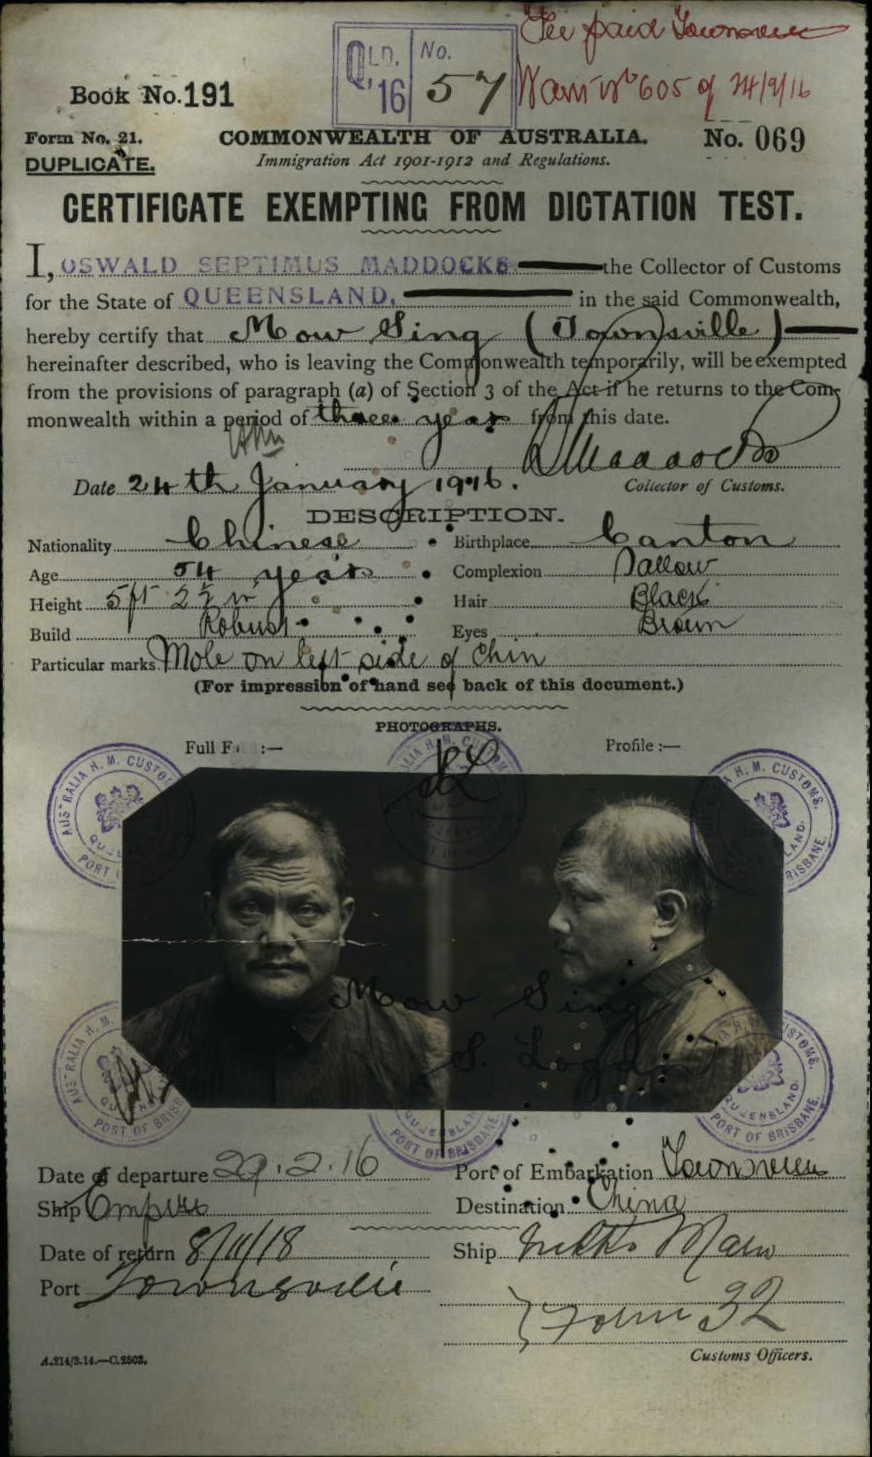 Fee paid Townsville
QLD. No.
'16 57
Warr No 605 of 24/9/16
Book No. 191
Form No. 21.
COMMONWEALTH OF AUSTRALIA.
No. 069
DUPLICATE.
Immigration Act 1901-1912 and Regulations.
CERTIFICATE EXEMPTING FROM DICTATION TEST.
I, OSWALD SEPTIMUS MADDOCKS the Collector of Customs
for the State of QUEENSLAND, in the said Commonwealth,
hereby certify that Mow Sing (Townsville)
hereinafter described, who is leaving the Commonwealth temporarily, will be exempted
from the provisions of paragraph (a) of Section 3 of the Act if he returns to the Com-
monwealth within a period of three years from this date.
Date 24th January 1916. Collector of Customs.
DESCRIPTION.
Nationality Chinese Birthplace Canton
Age 54 years Complexion Sallow
Height 5ft 2½ in Hair Black
Build Robust Eyes Brown
Particular marks Mole on left side of chin
(For impression of hand see back of this document.)
PHOTOGRAPHS.
Full F :— Profile :—
AUSTRALIA H. M. CUSTOMS.
QUEENSLAND.
PORT OF BRISBANE
Mow Sing
S. Logan
Date of departure 29.2.16 Port of Embarkation Townsville
Ship Empire Destination China
Date of return 8/11/18 Ship Nikko Maru
Port Townsville
Form 32
A.214/3.14.—C.2503. Customs Officers.